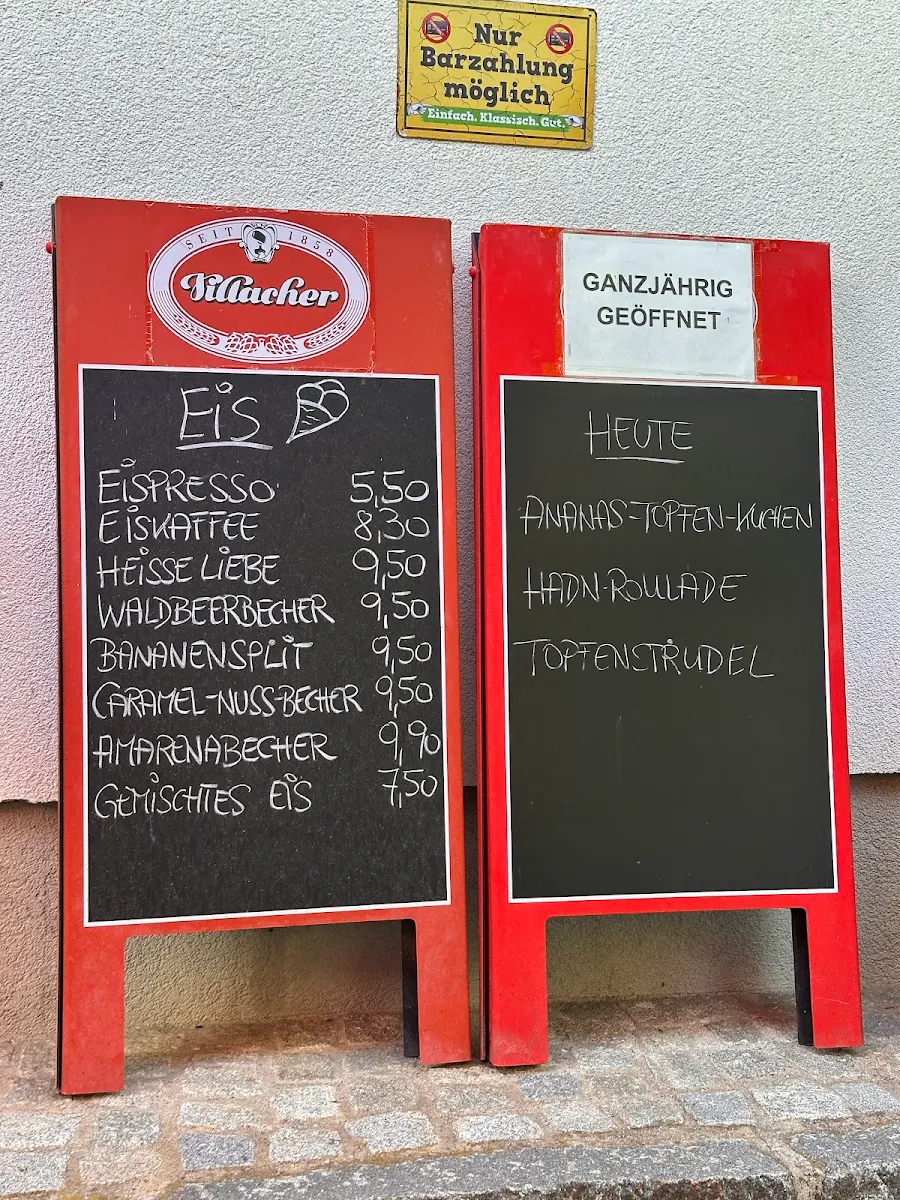 Nur
Barzahlung
möglich
Einfach. Klassisch. Gut.
SEIT 1858
Villacher
EIS
EISPRESSO 5,50
EISKAFFEE 8,30
HEISSE LIEBE 9,50
WALDBEERBECHER 9,50
BANANENSPLIT 9,50
CARAMEL-NUSS-BECHER 9,50
AMARENABECHER 9,90
GEMISCHTES EIS 7,50
GANZJÄHRIG
GEÖFFNET
HEUTE
ANANAS-TOPFEN-KUCHEN
HADN-ROULADE
TOPFENSTRUDEL